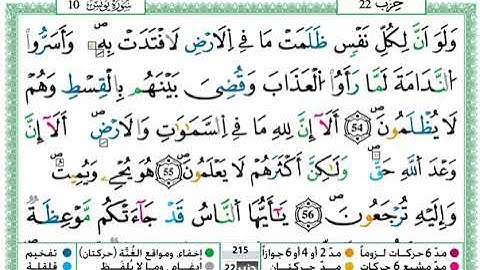 حزب 22 سُورَةُ يُونُسَ 10
وَلَوَ اَنَّ لِكُلِّ نَفْسٖ ظَلَمَتْ مَا فِے اِلَارْضِ لَافْتَدَتْ بِهِۦۖ وَأَسَرُّوا۟
اُ۬لنَّدَامَةَ لَمَّا رَأَوُا۟ اُ۬لْعَذَابَ وَقُضِيَ بَيْنَهُم بِالْقِسْطِ وَهُمْ
لَا يُظْلَمُونَۖ 54 أَلَآ إِنَّ لِلهِ مَا فِے اِ۬لسَّمَٰوَٰتِ وَالَارْضِۖ أَلَآ إِنَّ
وَعْدَ اَ۬للَّهِ حَقّٞ وَلَٰكِنَّ أَكْثَرَهُمْ لَا يَعْلَمُونَۖ 55 هُوَ يُحْيِۦ وَيُمِيتُۖ
وَإِلَيْهِ تُرْجَعُونَۖ 56 يَٰٓأَيُّهَا اَ۬لنَّاسُ قَدْ جَآءَتْكُم مَّوْعِظَةٞ
مدّ 6 حركات لزوماً مدّ 2 أو 4 أو 6 جوازاً 215 إخفاء، ومواقع الغُنَّة (حركتان) تفخيم
مدّ مشبع 6 حركات مدّ حركتان 22 إدغام، وما لا يُلفَظ قلقلة